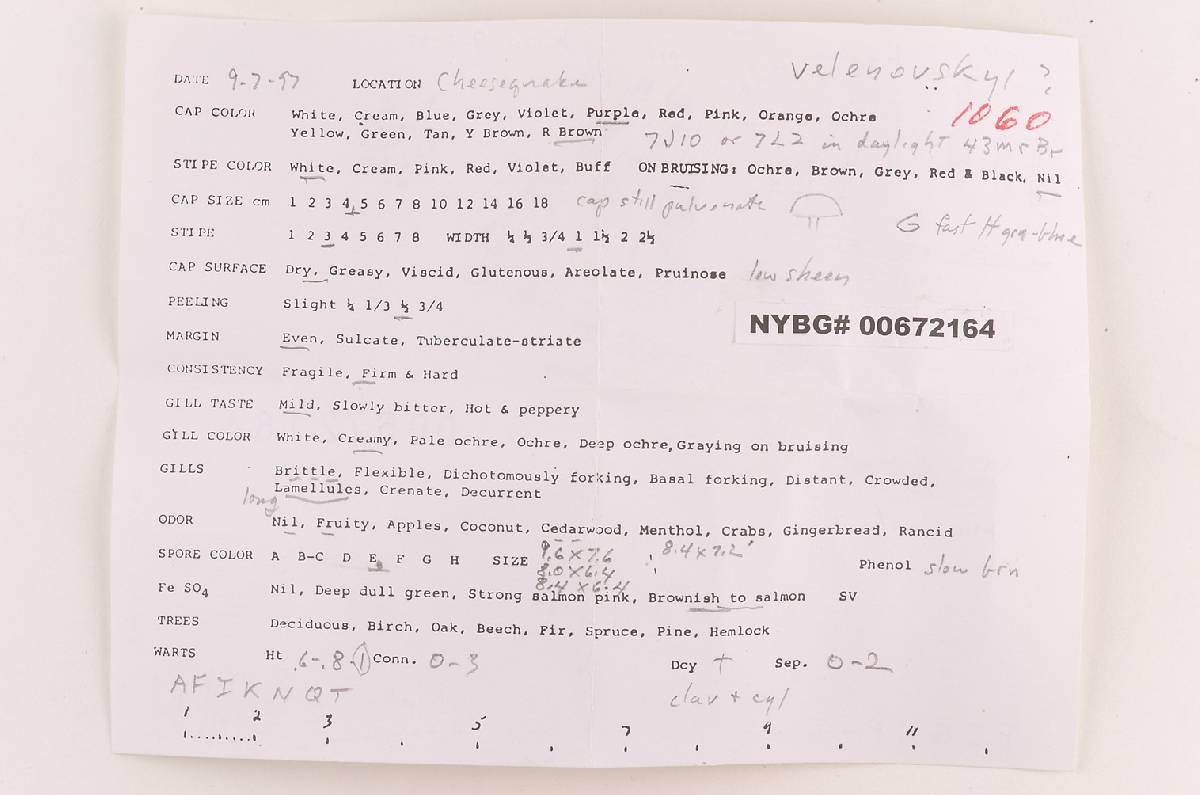 velenovskyi ?
DATE 9-7-97 LOCATION Cheesequake
1060
CAP COLOR White, Cream, Blue, Grey, Violet, Purple, Red, Pink, Orange, Ochre
Yellow, Green, Tan, Y Brown, R Brown 7J10 or 7L2 in daylight 43 m r Br
STIPE COLOR White, Cream, Pink, Red, Violet, Buff ON BRUISING: Ochre, Brown, Grey, Red & Black, Nil
CAP SIZE cm 1 2 3 4 5 6 7 8 10 12 14 16 18 cap still pulvinate
G fast H grn-blue
STIPE 1 2 3 4 5 6 7 8 WIDTH ¼ ½ 3/4 1 1½ 2 2½
CAP SURFACE Dry, Greasy, Viscid, Glutenous, Areolate, Pruinose low sheen
PEELING Slight ¼ 1/3 ½ 3/4
NYBG# 00672164
MARGIN Even, Sulcate, Tuberculate-striate
CONSISTENCY Fragile, Firm & Hard
GILL TASTE Mild, Slowly bitter, Hot & peppery
GYLL COLOR White, Creamy, Pale ochre, Ochre, Deep ochre, Graying on bruising
GILLS Brittle, Flexible, Dichotomously forking, Basal forking, Distant, Crowded,
long Lamellules, Crenate, Decurrent
ODOR Nil, Fruity, Apples, Coconut, Cedarwood, Menthol, Crabs, Gingerbread, Rancid
SPORE COLOR A B-C D E F G H SIZE 9.6 x 7.6 8.4 x 7.2
8.0 x 6.4 Phenol slow brn
8.4 x 6.4
Fe SO4 Nil, Deep dull green, Strong salmon pink, Brownish to salmon SV
TREES Deciduous, Birch, Oak, Beech, Fir, Spruce, Pine, Hemlock
WARTS Ht .6-.8 (1) Conn. 0-3 Dcy + Sep. 0-2
AFIKNQT clav + cyl
1 2 3 5 7 9 11